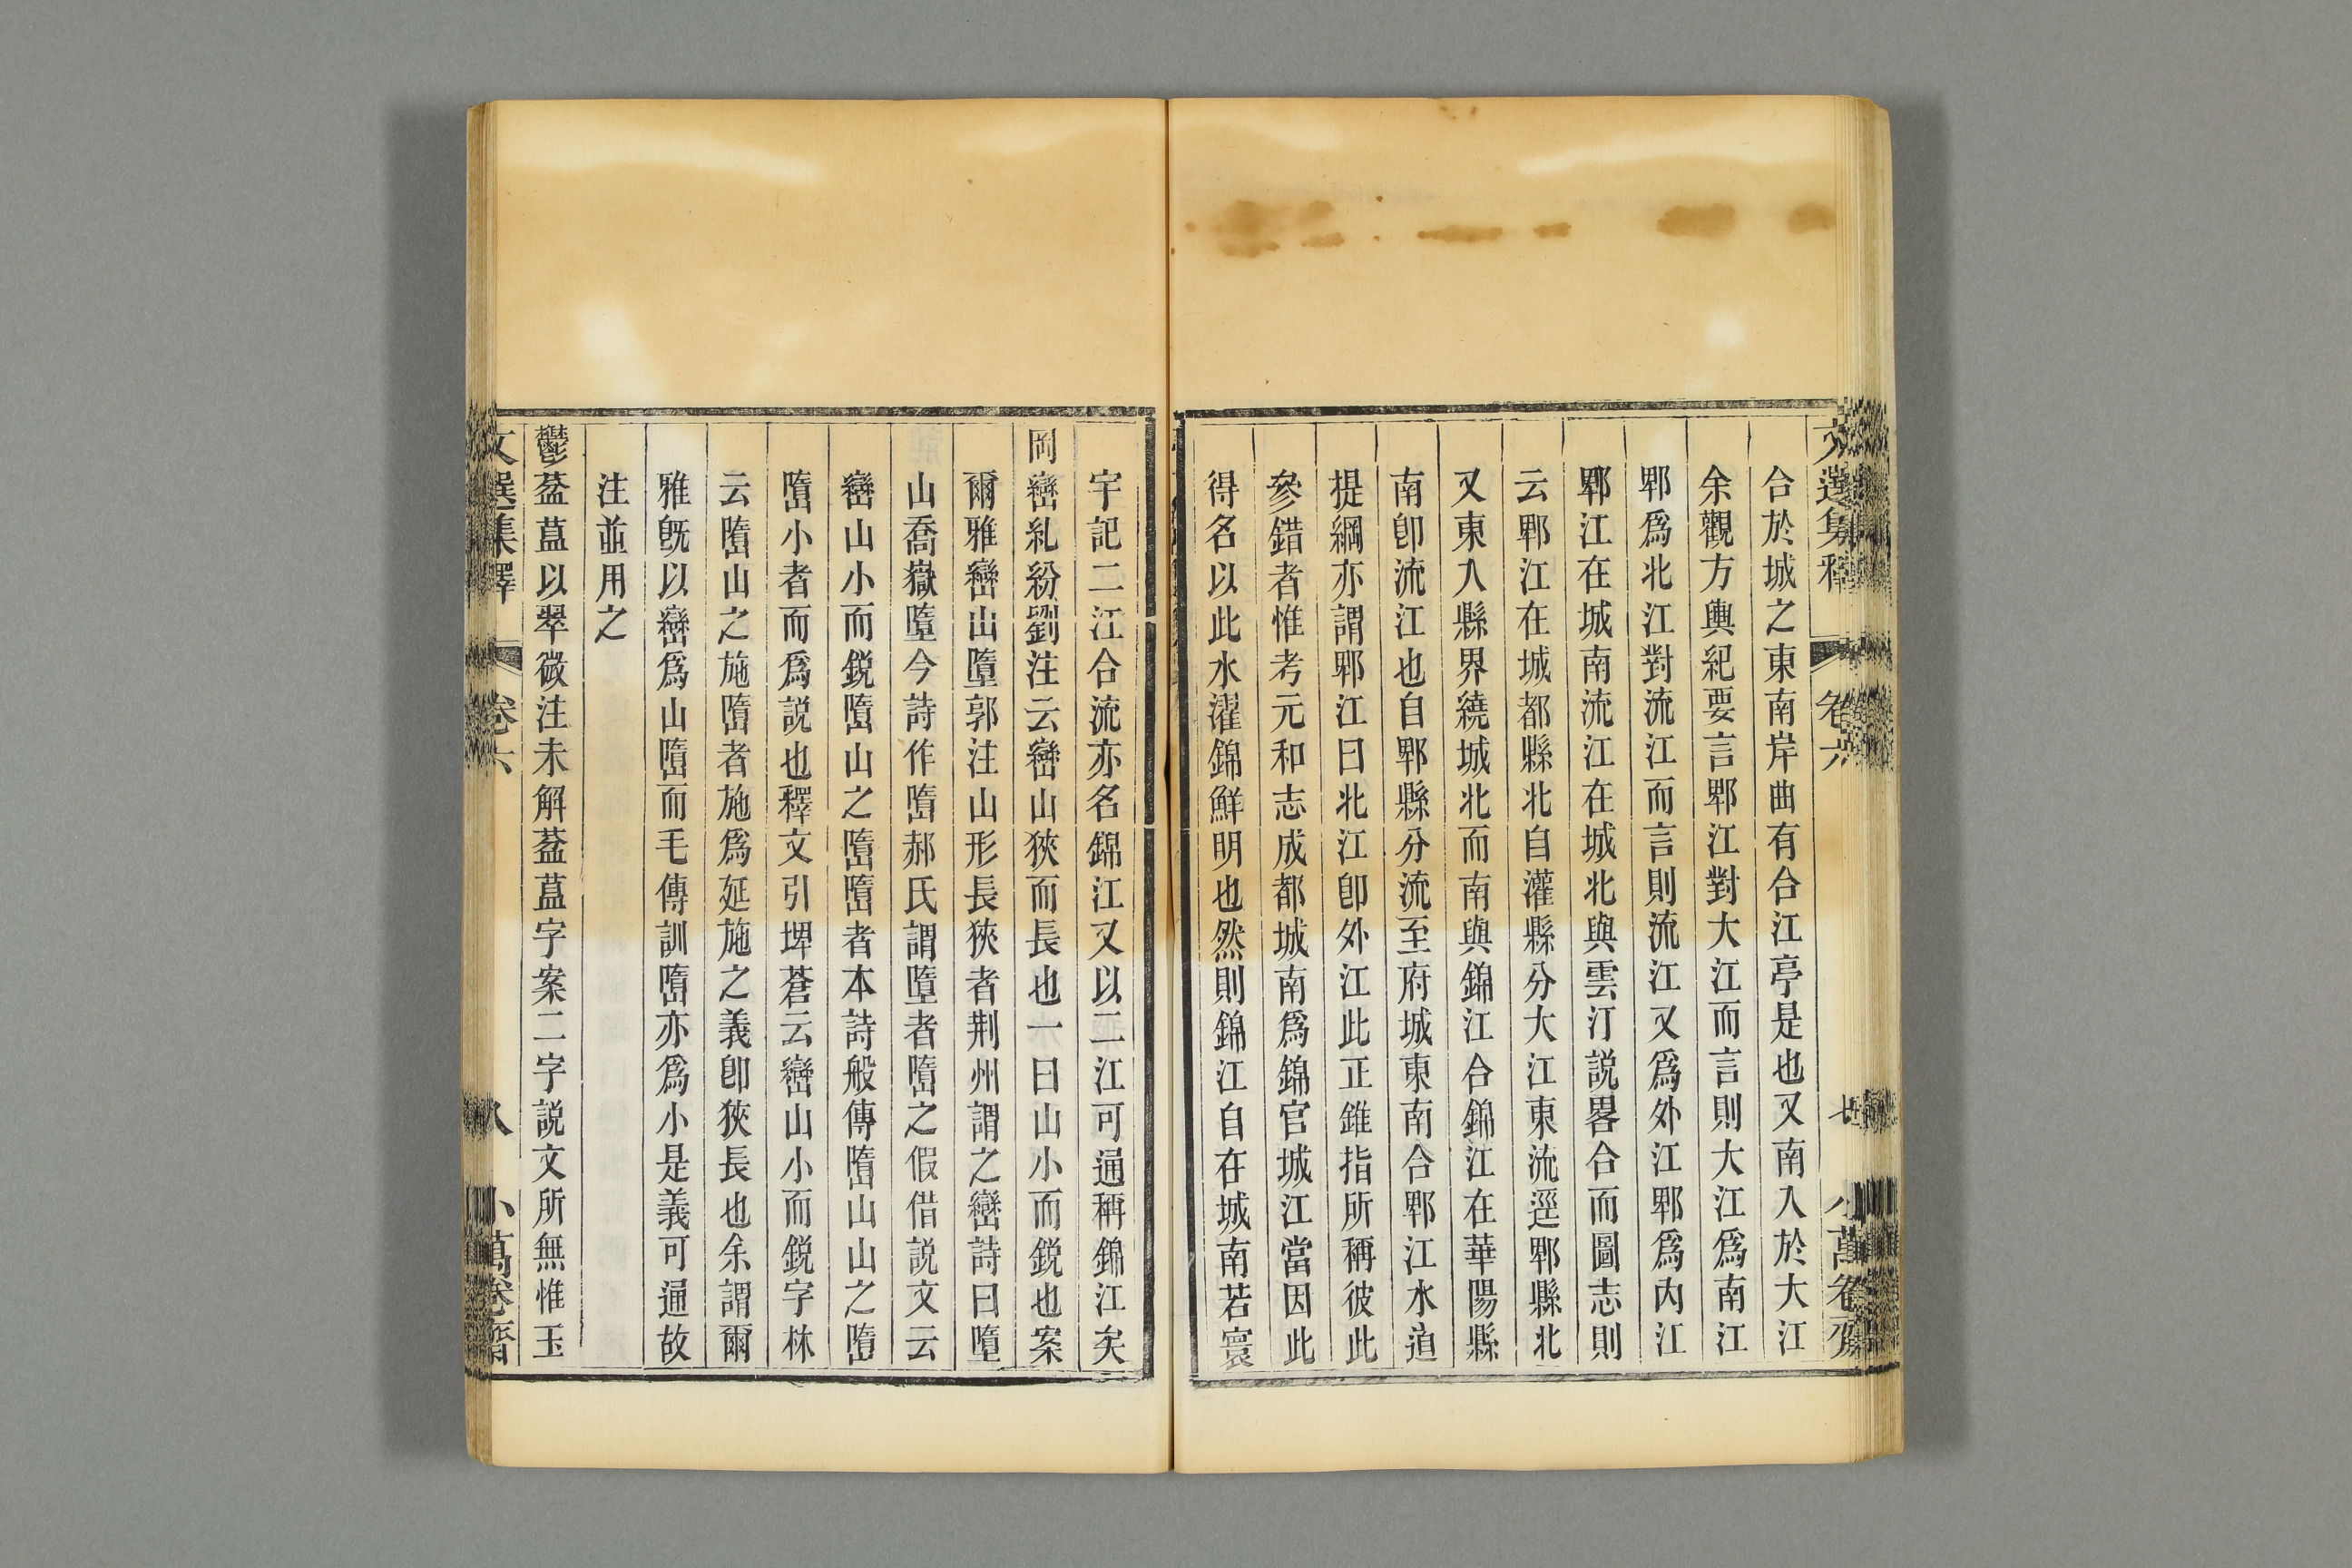 文選集釋 卷六 七 小萬卷齋
合於城之東南岸曲有合江亭是也又南入於大江
余觀方輿紀要言郫江對大江而言則大江爲南江
郫爲北江對流江而言則流江又爲外江郫爲内江
郫江在城南流江在城北與雲汀説畧合而圖志則
云郫江在城都縣北自灌縣分大江東流逕郫縣北
又東入縣界繞城北而南與錦江合錦江在華陽縣
南卽流江也自郫縣分流至府城東南合郫江水道
提綱亦謂郫江曰北江卽外江此正錐指所稱彼此
參錯者惟考元和志成都城南爲錦官城江當因此
得名以此水濯錦鮮明也然則錦江自在城南若寰
宇記二江合流亦名錦江又以二江可通稱錦江矣
岡巒糺紛劉注云巒山狹而長也一曰山小而鋭也案
爾雅巒山墮郭注山形長狹者荆州謂之巒詩曰墮
山喬嶽墮今詩作嶞郝氏謂墮者嶞之假借説文云
巒山小而鋭嶞山之嶞嶞者本詩般傳嶞山山之嶞
嶞小者而爲説也釋文引埤蒼云巒山小而鋭字林
云嶞山之施嶞者施爲延施之義卽狹長也余謂爾
雅旣以巒爲山嶞而毛傳訓嶞亦爲小是義可通故
注並用之
鬱葐蒀以翠微注未解葐蒀字案二字説文所無惟玉
文選集釋 卷六 八 小萬卷齋